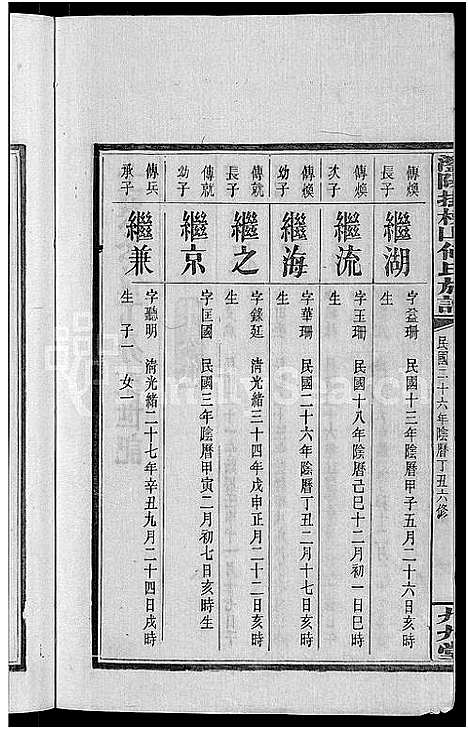 民國二十六年陰曆丁丑六修
傳煥長子
繼湖
字益珊 民國十三年陰曆甲子五月二十六日亥時
生
傳煥次子
繼流
字玉珊 民國十八年陰曆己巳十二月初一日巳時
生
傳煥幼子
繼海
字華珊 民國二十六年陰曆丁丑二月十七日亥時
生
傳就長子
繼之
字錄廷 清光緒三十四年戊申正月二十二日亥時
生
傳就幼子
繼京
字匡國 民國三年陰曆甲寅二月初七日亥時生
傳兵承子
繼兼
字聽明 清光緒二十七年辛丑九月二十四日戌時
生 子一 女一
FamilySearch